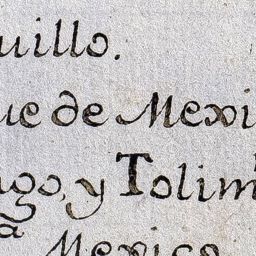 uillo.
ue de Mexi
ngo, y Tolim
a Mexico